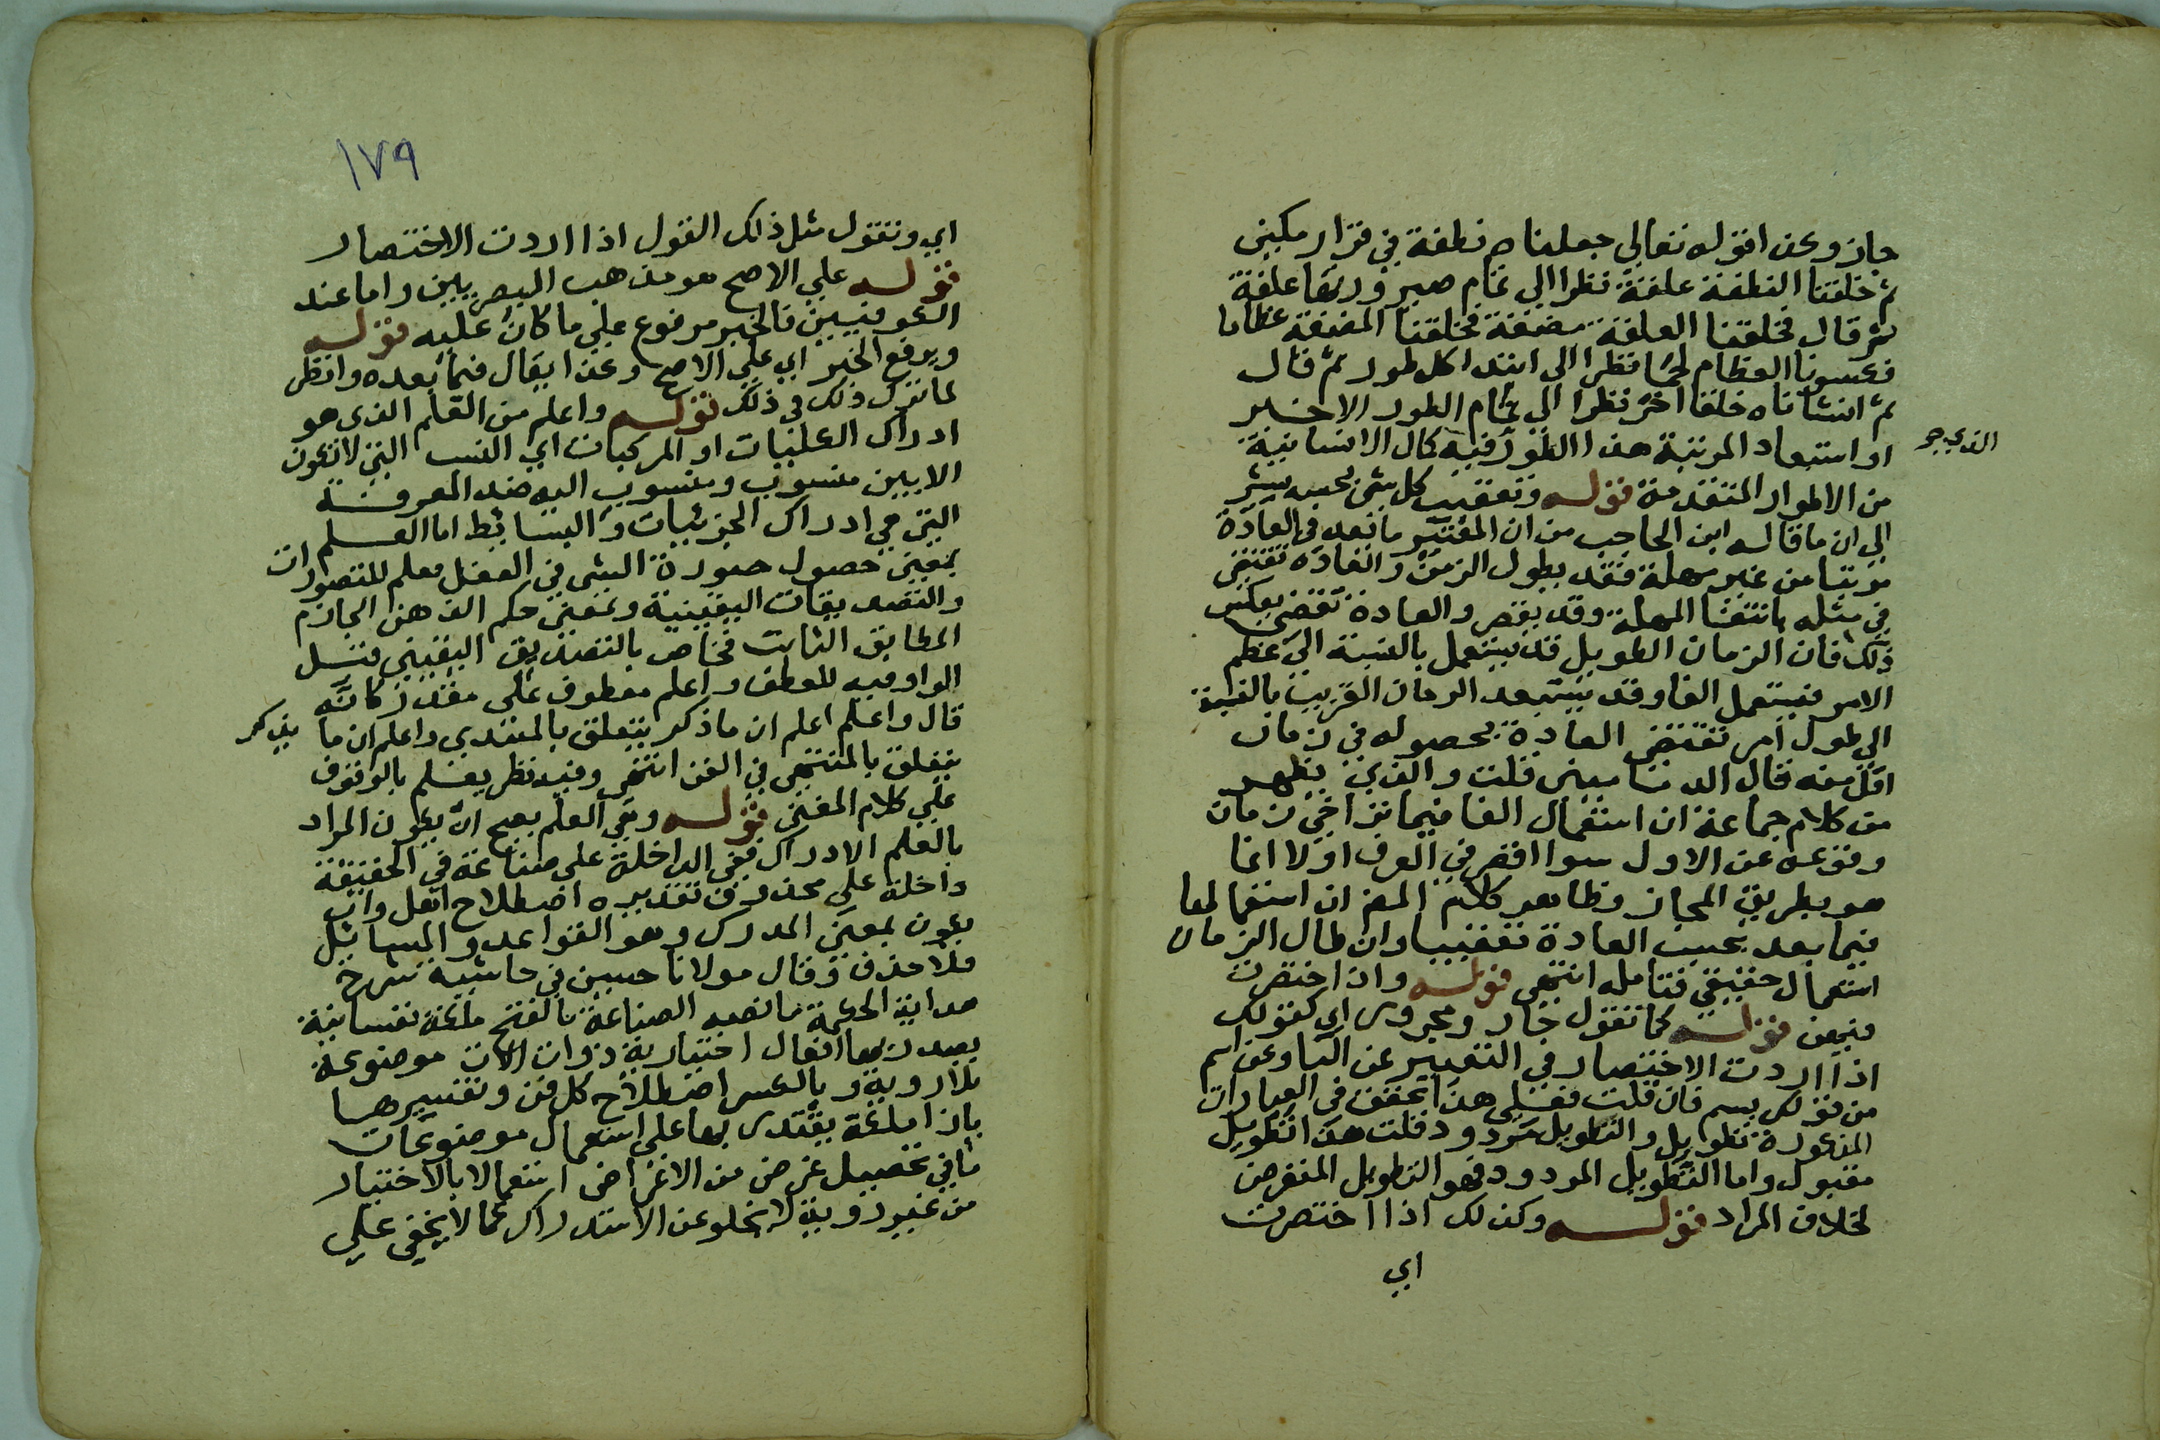 جاز وعن اقوله تعالى جعلناه نطفة في قرار مكين
ثم خلقنا النطفة علقة نظرا الي تمام صيرورتها علقة
ثم قال فخلقنا العلقة مضغة فخلقنا المضغة عظاما
فكسونا العظام لحما نظرا الى ابتدا كل طور ثم قال
ثم انشاناه خلقا اخر نظرا الى تمام الطور الاخير
او استبعاد المرتبة هذا الطور فيه كمال الانسانية
الذي هو
من الاطوار المتقدمة قوله وتعقيب كل شئ بحسبه يشير
الي ان ما قاله ابن الحاجب من ان المعتبر ما يعد في العادة
مرتبا من غير مهلة فقد يطول الزمن والعادة تقتضي
في مثله بانتفا المهلة وقد يقصر والعادة تقتضي بعكس
ذلك فان الزمان الطويل قد يستعمل بالنسبة الى عظم
الامر فيستعمل الفا وقد يستبعد الزمان القريب بالنسبة
الي طول امر تقتضي العادة بحصوله في زمان
اقل منه قال الدماميني قلت والذي يظهر
من كلام جماعة ان استعمال الفا فيما تراخي زمان
وقوعه عن الاول سوا اقصر في العرف او لا انما
هو بطريق المجاز وظاهر كلام المص ان استعمالها
فيما يعد بحسب العادة تعقيبا وان طال الزمان
استعمال حقيقي فتامله انتهى قوله واذا اختصرت
فيهن قوله كما تقول جار ومجرور اي كقولك
اذا اردت الاختصار في التعبير عن البا وعن اسم
من قولك بسم فان قلت فعلى هذا تحقق في العبارات
المذكورة تطويل والتطويل مردود قلت هذا تطويل
مقبول واما التطويل المردود فهو التطويل المتفرض
لخلاف المراد قوله وكذلك اذا اختصرت
اي
١٧٩
اي وتقول مثل ذلك القول اذا اردت الاختصار
قوله علي الاصح هو مذهب البصريين واما عند
الكوفيين فالخبر مرفوع علي ما كان عليه قوله
ويرفع الخبر اي علي الاصح وعن ايقال فيما بعده وانظر
لما ترك ذلك في ذلك قوله واعلم من العلم الذي هو
ادراك الكليات او المركبات اي النسب التي لا تكون
الا بين منسوب ومنسوب اليه ضد المعرفة
التي هي ادراك الجزئيات والبسائط اما العلم
بمعنى حصول صورة الشي في العقل معلم للتصورات
والتصديقات اليقينية وبمعنى حكم الذهن الجازم
المطابق الثابت فخاص بالتصديق اليقيني
الواو فيه للعطف واعلم معطوف على مقدر كانه
قال واعلم اعلم ان ما ذكر يتعلق بالمبتدي واعلم ان ما يذكر
يتعلق بالمنتهى في الفن انتهى وفيه نظر يعلم بالوقوف
علي كلام المغني قوله وفي العلم يصح ان يكون المراد
بالعلم الادراك ففي الداخلة على صناعة في الحقيقة
داخلة علي محذوف تقديره اصطلاح اهل وان
يكون بمعنى المدرك وهو القواعد والمسائل
فلا حذف وقال مولانا حسين في حاشية شرح
هداية الحكمة ما نصه الصناعة بالفتح ملكة نفسانية
يصدر بها افعال اختيارية ذوات الات موضوعة
بلا روية وبالكسر اصطلاح كل فن وتفسيرها
بانها ملكة يقتدى بها علي استعمال موضوعات
ما في تحصيل غرض من الاغراض استعمالا بالاختيار
من غير روية لا يخلو عن الاستدراك كما لا يخفى علي